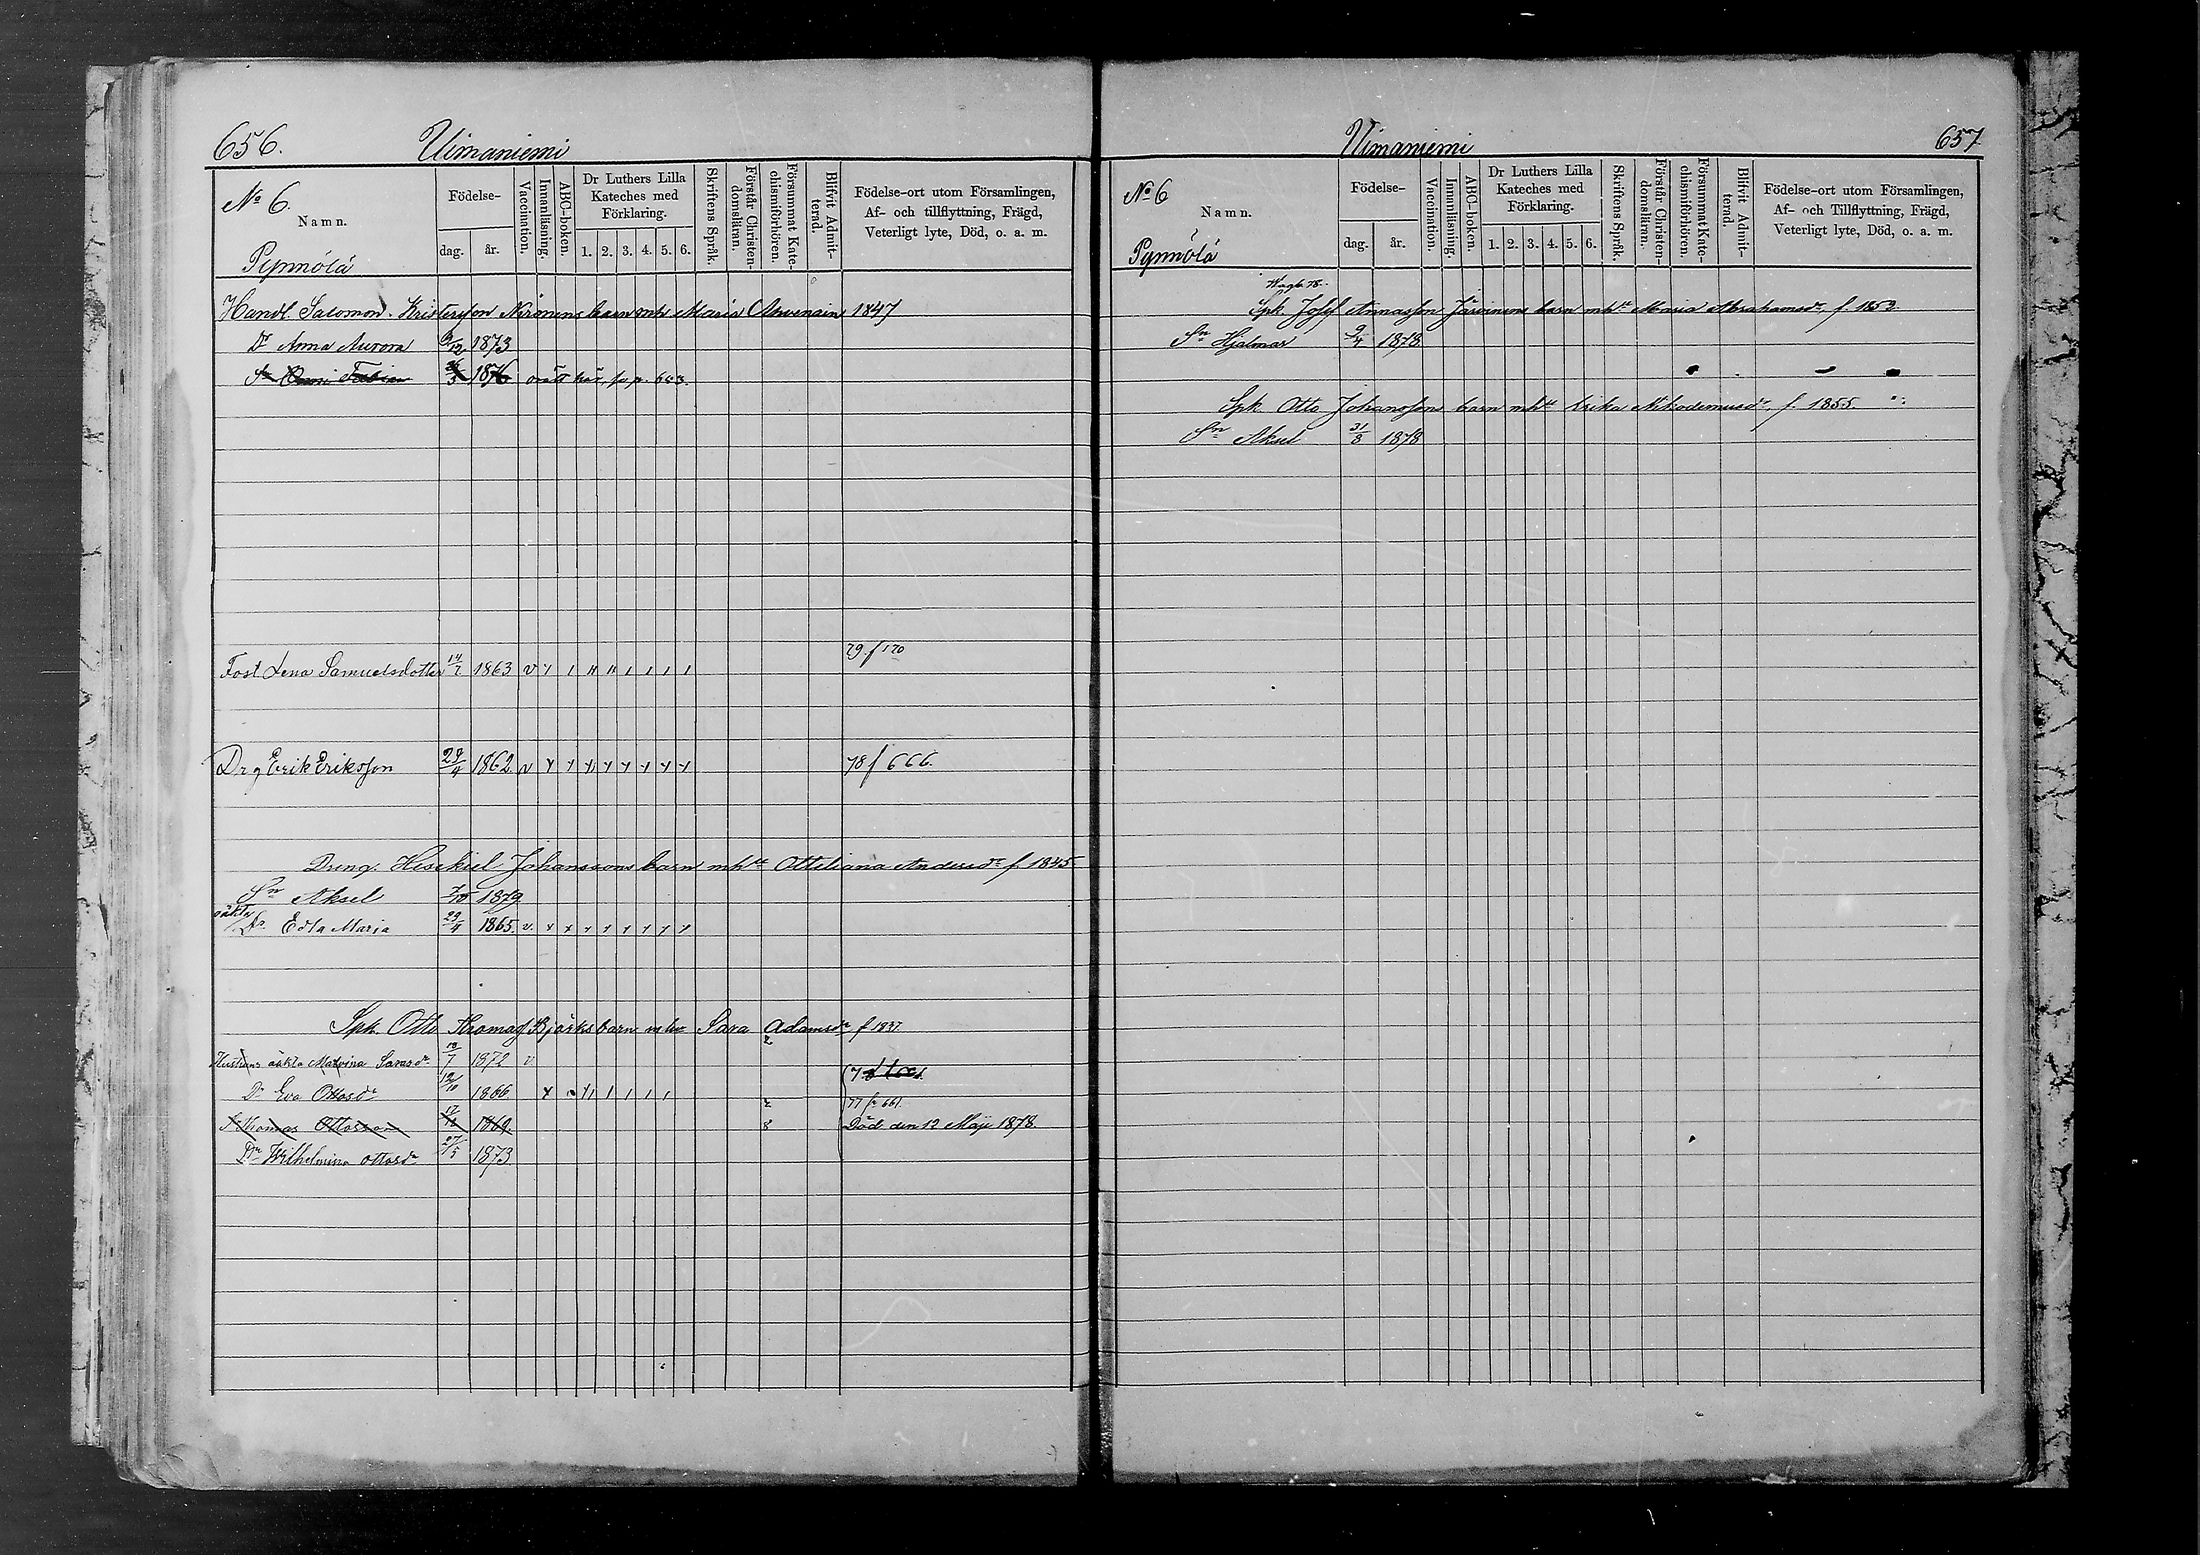 656. Uimaniemi
No 6.
Namn.
Pynnölä
Födelse-
dag. år.
Vaccination.
Innanläsning.
ABC-boken.
Dr Luthers Lilla
Kateches med
Förklaring.
1. 2. 3. 4. 5. 6.
Skriftens Språk.
Förstår Christen-
domsläran.
Försummat Kate-
chismiförhören.
Blifvit Admit-
terad.
Födelse-ort utom Församlingen,
Af- och tillflyttning, Frägd,
Veterligt lyte, Död, o. a. m.
Handl. Salomon Kristersson barn mh Maria Ahvenain 1847
Dr Anna Aurora 1873
Sn Fabian 1876 orätt här, p. 653.
79 f 170
Fost Lena Samuelsdotter 14/7 1863 v
Drg Erik Eriksson 29/4 1862 v 78 f 666.
Dreng. Hesekiel Johanssons barn mh Ottiliana Andersdr f. 1845
Sn Aksel 7/10 1879
oäkta
Dr Edla Maria 29/4 1865. v.
Spk. Otto Björks barn m hu Sara Adamsdr f 1837
Hustruns oäkta Malvina Sarasdr 18/7 1872 v
Dr Eva Ottosdr 12/10 1866
77 f 661
Sn Thomas Ottosson 17/12 1869. Död den 12 Maji 1878.
Dr Wilhelmina Ottosdr 27/5 1873
Uimaniemi 657
No 6
Namn.
Pynnölä
Födelse-
dag. år.
Vaccination.
Innanläsning.
ABC-boken.
Dr Luthers Lilla
Kateches med
Förklaring.
1. 2. 3. 4. 5. 6.
Skriftens Språk.
Förstår Christen-
domsläran.
Försummat Kate-
chismiförhören.
Blifvit Admit-
terad.
Födelse-ort utom Församlingen,
Af- och Tillflyttning, Frägd,
Veterligt lyte, Död, o. a. m.
Spk. Josef Annasson Järvinens barn mh Maria Abrahamsdr, f. 1853.
Sn Hjalmar 9/4 1878
Spk. Otto Johanssons barn mh Erika Nikodemusdr, f. 1855.
Sn Aksel 31/8 1878